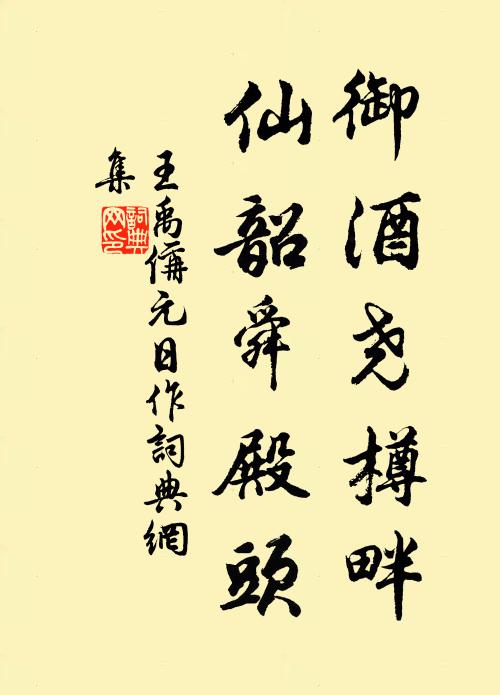 御酒尧樽畔
仙韶舜殿頭
王禹偁元日作詞典網
集
詞典
网印